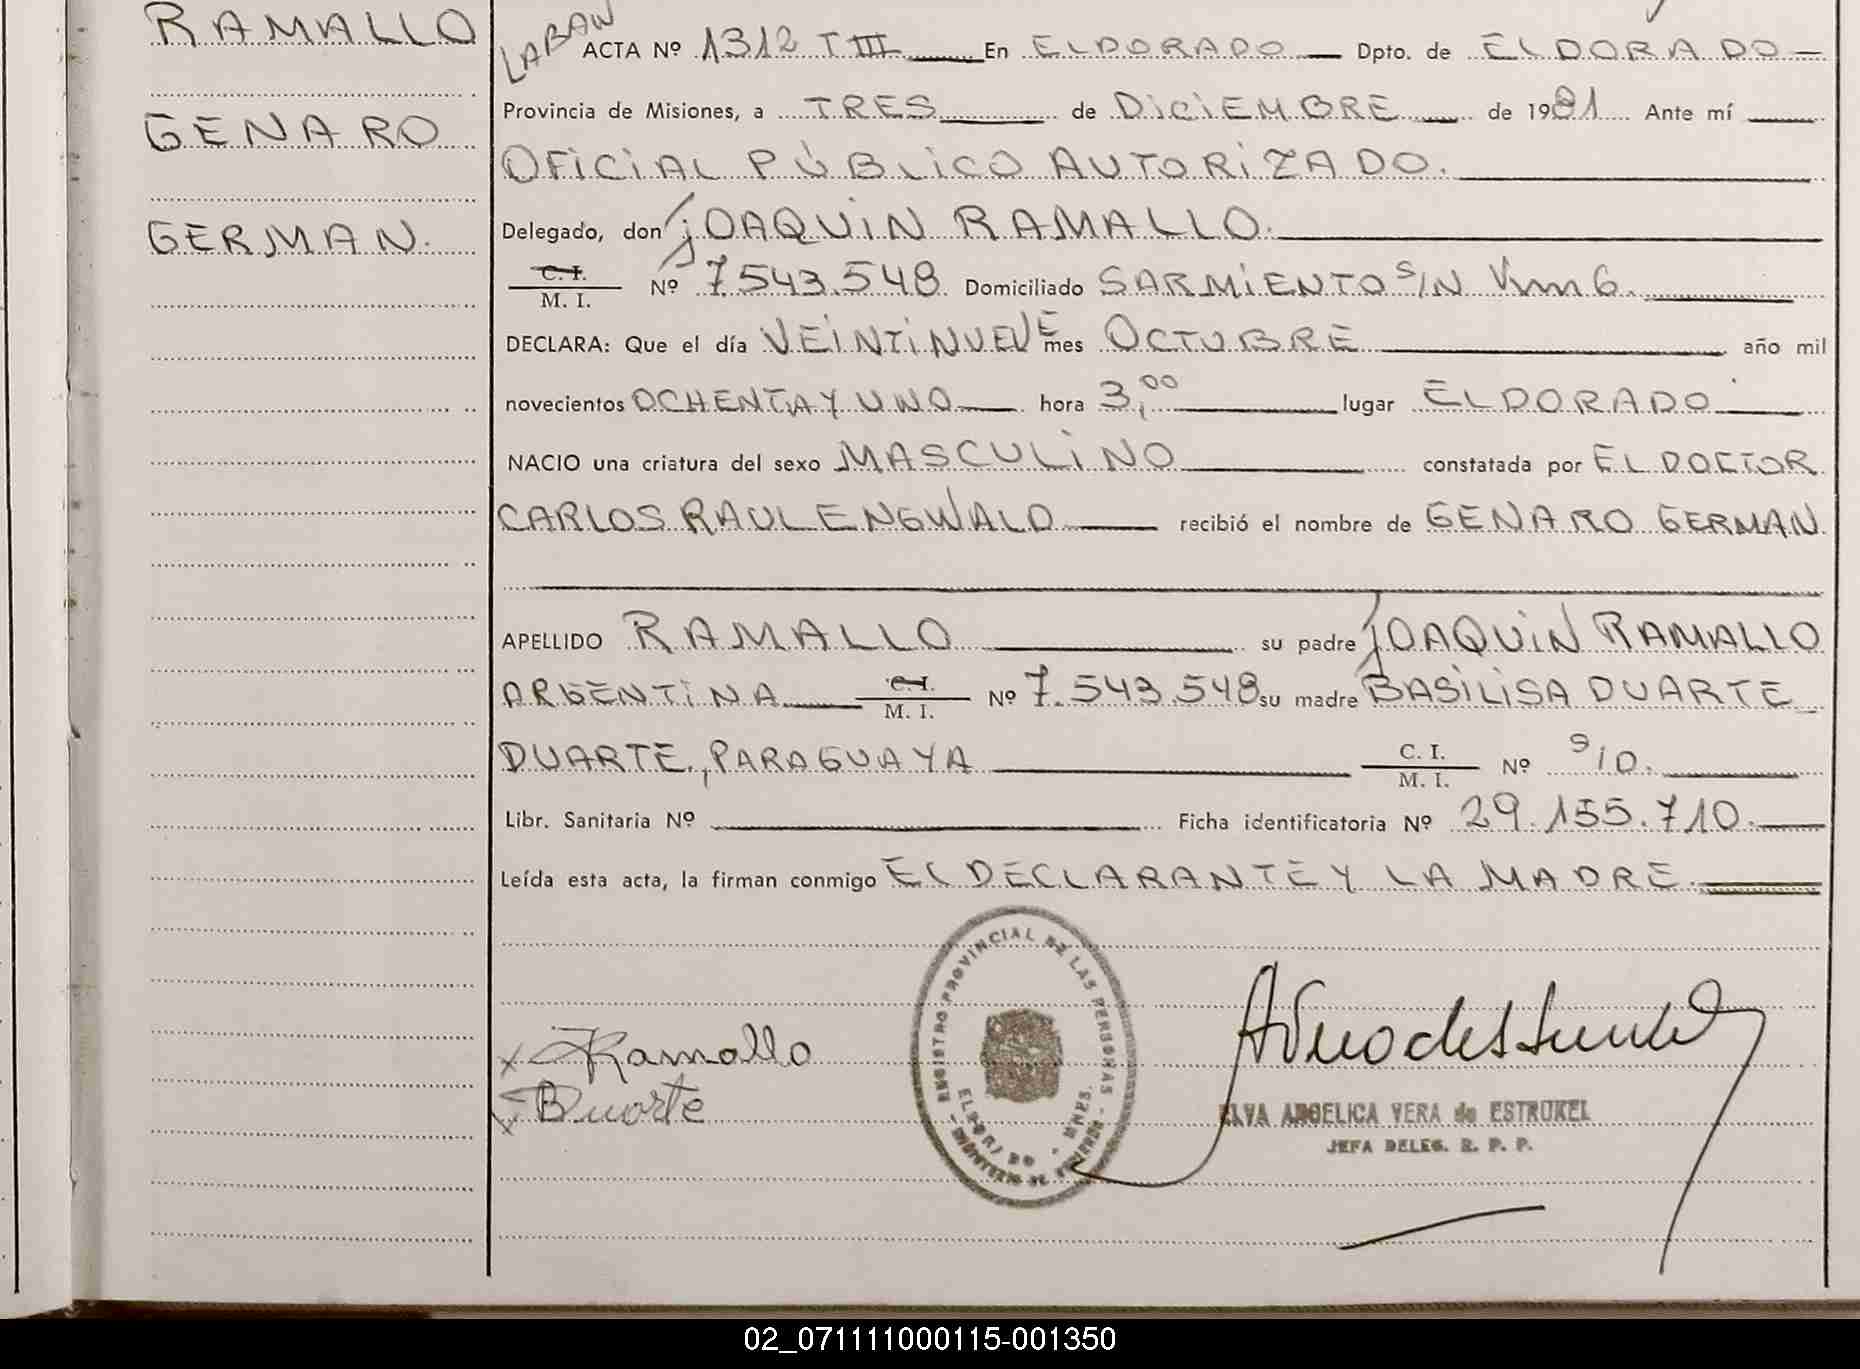 RAMALLO
GENARO
GERMAN.
LABAN
ACTA Nº 1312 T III En ELDORADO Dpto. de ELDORADO
Provincia de Misiones, a TRES de DICIEMBRE de 1981 Ante mí
OFICIAL PÚBLICO AUTORIZADO.
Delegado, don JOAQUIN RAMALLO.
C. I. / M. I. Nº 7.543.548 Domiciliado SARMIENTO S/N Km 6.
DECLARA: Que el día VEINTINUEVE mes OCTUBRE año mil
novecientos OCHENTA Y UNO hora 3,00 lugar ELDORADO
NACIO una criatura del sexo MASCULINO constatada por EL DOCTOR
CARLOS RAUL ENGWALD recibió el nombre de GENARO GERMAN
APELLIDO RAMALLO su padre JOAQUIN RAMALLO
ARGENTINA C. I. / M. I. Nº 7.543.548 su madre BASILISA DUARTE
DUARTE, PARAGUAYA C. I. / M. I. Nº S/D.
Libr. Sanitaria Nº Ficha identificatoria Nº 29.155.710.
Leída esta acta, la firman conmigo EL DECLARANTE Y LA MADRE.
REGISTRO PROVINCIAL DE LAS PERSONAS
ELDORADO - MNES.
MINISTERIO DE GOBIERNO
x Ramallo
x B Duarte
ELVA ANGELICA VERA de ESTRUKEL
JEFA DELEG. R. P. P.
02_071111000115-001350